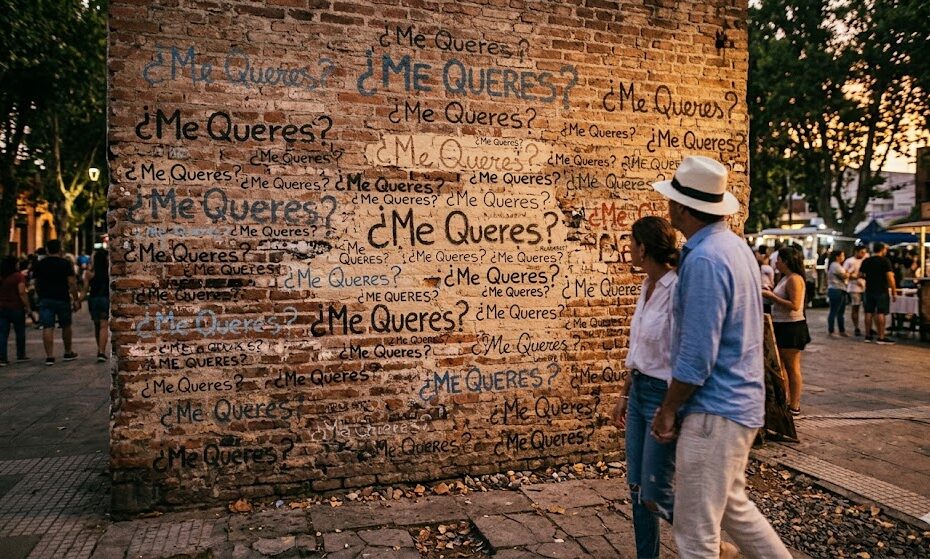 ¿Me Queres?
¿Me Queres?
¿ME QUERES?
¿Me Queres?
¿Me Queres?
¿Me Queres?
¿Me Queres?
¿Me Queres?
¿Me Queres?
¿Me Queres?
¿Me Queres?
¿Me Queres?
¿Me Queres?
¿Me Queres?
¿Me Queres?
¿Me Queres?
¿Me Queres?
¿Me Queres?
¿Me Queres?
¿Me Queres?
¿Me Queres?
¿Me Queres?
¿Me Queres?
¿Me Queres?
¿Me Queres?
¿Me Queres?
¿Me Queres?
¿Me Queres?
¿ME QUERES?
¿Me Queres?
¿Me Queres?
¿Me Queres?
¿Me Queres?
¿Me Queres?
¿Me Queres?
¿Me Queres?
¿Me Queres?
¿Me Queres?
¿ME QUERES?
¿Me Queres?
¿Me Queres?
¿Me Queres?
¿Me Queres?
¿Me Queres?